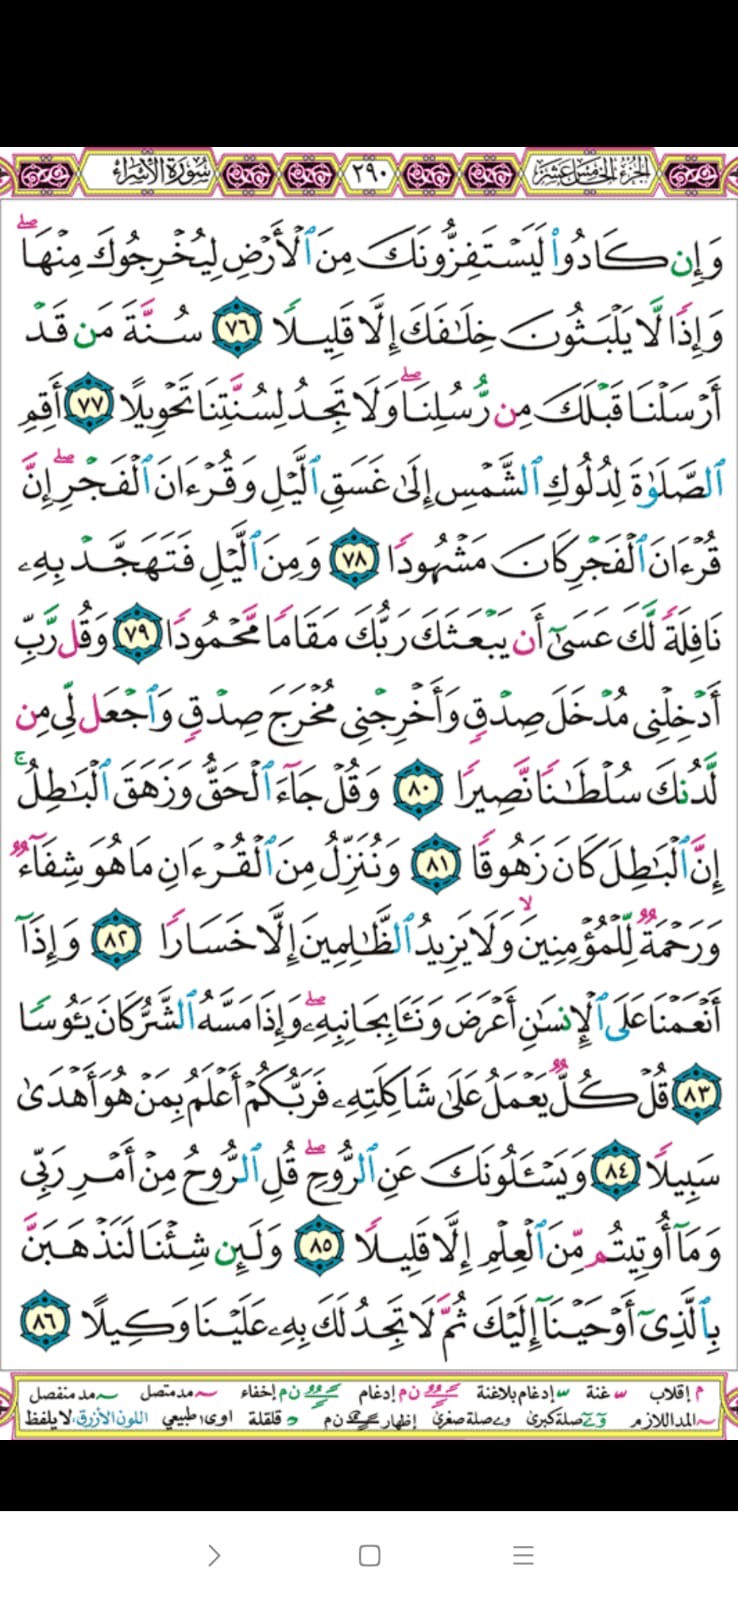 سُورَةُ الإِسْرَاء ٢٩٠ الجُزْءُ الخَامِسَ عَشَرَ
وَإِن كَادُوا۟ لَيَسْتَفِزُّونَكَ مِنَ ٱلْأَرْضِ لِيُخْرِجُوكَ مِنْهَا ۖ
وَإِذًا لَّا يَلْبَثُونَ خِلَـٰفَكَ إِلَّا قَلِيلًا ٧٦ سُنَّةَ مَن قَدْ
أَرْسَلْنَا قَبْلَكَ مِن رُّسُلِنَا ۖ وَلَا تَجِدُ لِسُنَّتِنَا تَحْوِيلًا ٧٧ أَقِمِ
ٱلصَّلَوٰةَ لِدُلُوكِ ٱلشَّمْسِ إِلَىٰ غَسَقِ ٱلَّيْلِ وَقُرْءَانَ ٱلْفَجْرِ ۖ إِنَّ
قُرْءَانَ ٱلْفَجْرِ كَانَ مَشْهُودًا ٧٨ وَمِنَ ٱلَّيْلِ فَتَهَجَّدْ بِهِۦ
نَافِلَةً لَّكَ عَسَىٰٓ أَن يَبْعَثَكَ رَبُّكَ مَقَامًا مَّحْمُودًا ٧٩ وَقُل رَّبِّ
أَدْخِلْنِى مُدْخَلَ صِدْقٍ وَأَخْرِجْنِى مُخْرَجَ صِدْقٍ وَٱجْعَل لِّى مِن
لَّدُنكَ سُلْطَـٰنًا نَّصِيرًا ٨٠ وَقُلْ جَآءَ ٱلْحَقُّ وَزَهَقَ ٱلْبَـٰطِلُ ۚ
إِنَّ ٱلْبَـٰطِلَ كَانَ زَهُوقًا ٨١ وَنُنَزِّلُ مِنَ ٱلْقُرْءَانِ مَا هُوَ شِفَآءٌ
وَرَحْمَةٌ لِّلْمُؤْمِنِينَ ۙ وَلَا يَزِيدُ ٱلظَّـٰلِمِينَ إِلَّا خَسَارًا ٨٢ وَإِذَآ
أَنْعَمْنَا عَلَى ٱلْإِنسَـٰنِ أَعْرَضَ وَنَـَٔا بِجَانِبِهِۦ ۖ وَإِذَا مَسَّهُ ٱلشَّرُّ كَانَ يَـُٔوسًا
٨٣ قُلْ كُلٌّ يَعْمَلُ عَلَىٰ شَاكِلَتِهِۦ فَرَبُّكُمْ أَعْلَمُ بِمَنْ هُوَ أَهْدَىٰ
سَبِيلًا ٨٤ وَيَسْـَٔلُونَكَ عَنِ ٱلرُّوحِ ۖ قُلِ ٱلرُّوحُ مِنْ أَمْرِ رَبِّى
وَمَآ أُوتِيتُم مِّنَ ٱلْعِلْمِ إِلَّا قَلِيلًا ٨٥ وَلَئِن شِئْنَا لَنَذْهَبَنَّ
بِٱلَّذِىٓ أَوْحَيْنَآ إِلَيْكَ ثُمَّ لَا تَجِدُ لَكَ بِهِۦ عَلَيْنَا وَكِيلًا ٨٦
م إقلاب غنة إدغام بلاغنة ن م إدغام ن م إخفاء مد متصل مد منفصل
المد اللازم صلة كبرى صلة صغرى إظهار ن م قلقلة طبيعي اللون الأزرق، لا يلفظ